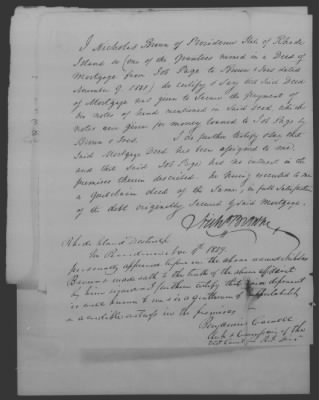 I Nicholas Brown of Providence State of Rhode
Island &c (one of the Grantees named in a Deed of
Mortgage from Job Page to Brown & Ives dated
November 9. ) do certify & say that said Deed
of Mortgage was given to secure the payment of
notes of hand mentioned in said deed, which
notes were given for money loaned to Job Page by
Brown & Ives. I do further certify & say that
said Mortgage Deed has been assigned to me
and that said Job Page has no interest in the
premises therein described he having executed to me
a quitclaim deed of the same, in full satisfaction
of the debt originally secured by said Mortgage.
Nich Brown
Rhode Island District Sc
In Providence 9th
personally appeared before me the above named Nicholas
Brown & made oath to the truth of the above affidavit
by him signed and I further certify that said deponent
is well known to me & is a gentleman of respectability
& a credible witness in the premises
Benjamin Cowell
Clerk of the
Court